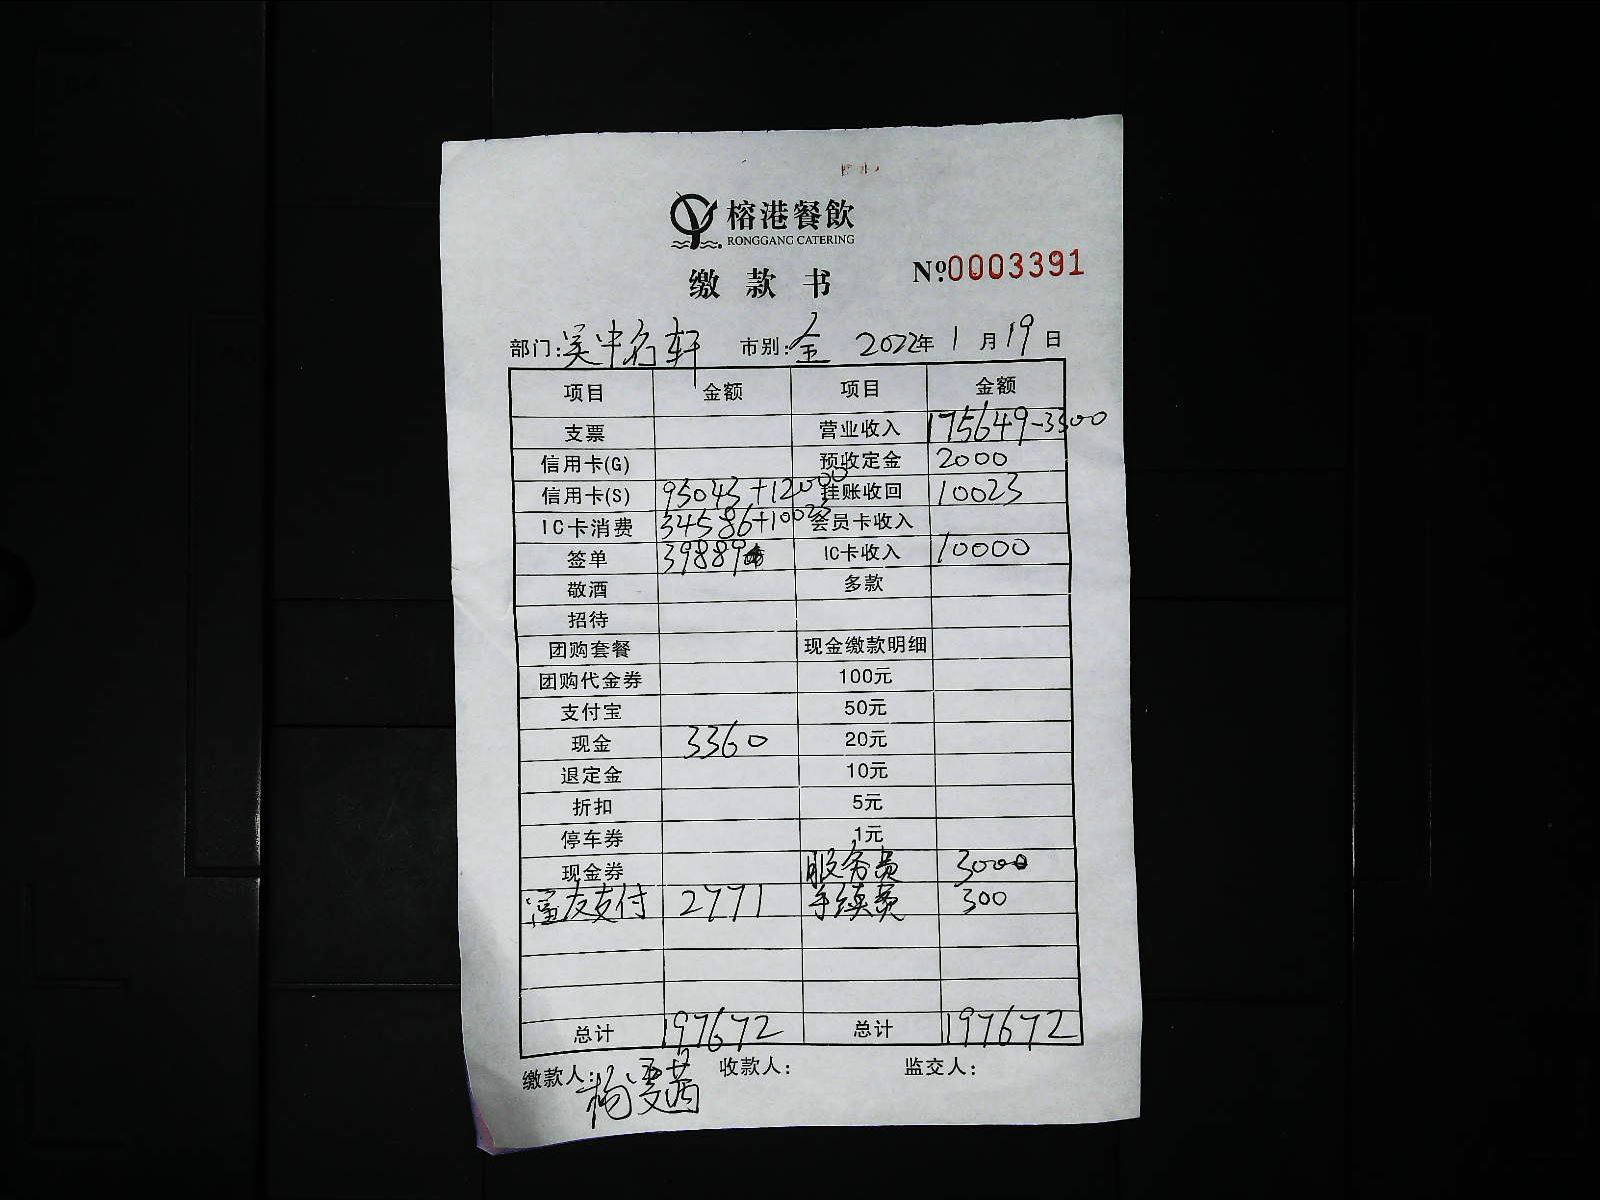 榕港餐飲
RONGGANG CATERING
缴款书 No.0003391
部门: 吴中名轩 市别: 全 2022年 1月 19日
项目 金额 项目 金额
支票 营业收入 175649-3300
信用卡(G) 预收定金 2000
信用卡(S) 95043+12000 挂账收回 10023
IC卡消费 34586+10023 会员卡收入
签单 39889 IC卡收入 10000
敬酒 多款
招待
团购套餐 现金缴款明细
团购代金券 100元
支付宝 50元
现金 3360 20元
退定金 10元
折扣 5元
停车券 1元
现金券 服务费 3000
友支付 2771 手续费 300
总计 197672 总计 197672
缴款人: 杨 收款人: 监交人: